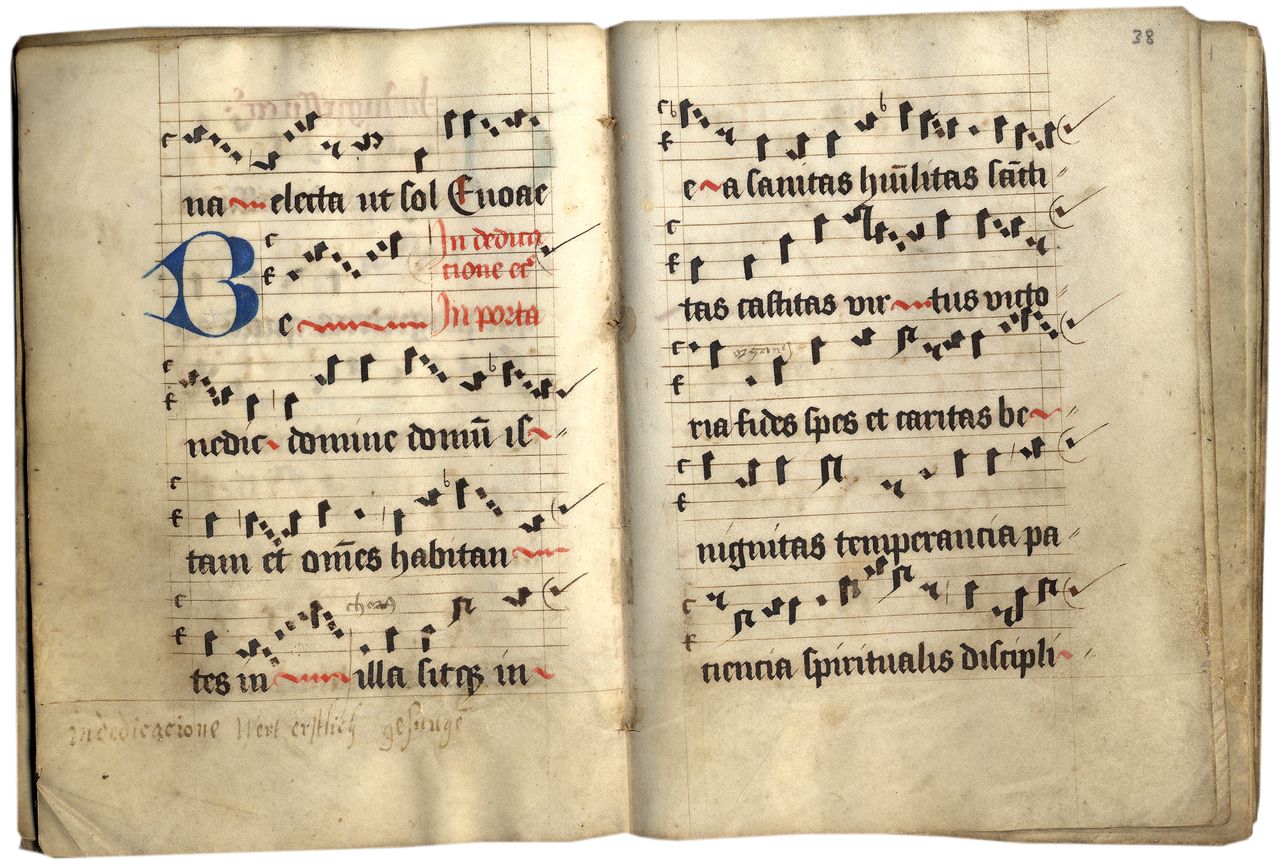 na electa ut sol Euoae
In dedica
tione etc
Be In porta
nedic domine domū is
tam et om̄es habitan
tes in illa sitqꝫ in
in dedicacione Wert erstlich gesunge
38
e a sanitas hūilitas sāti
tas castitas vir tus victo
ria fides spes et caritas be
nignitas temperancia pa
ciencia spiritualis discipli